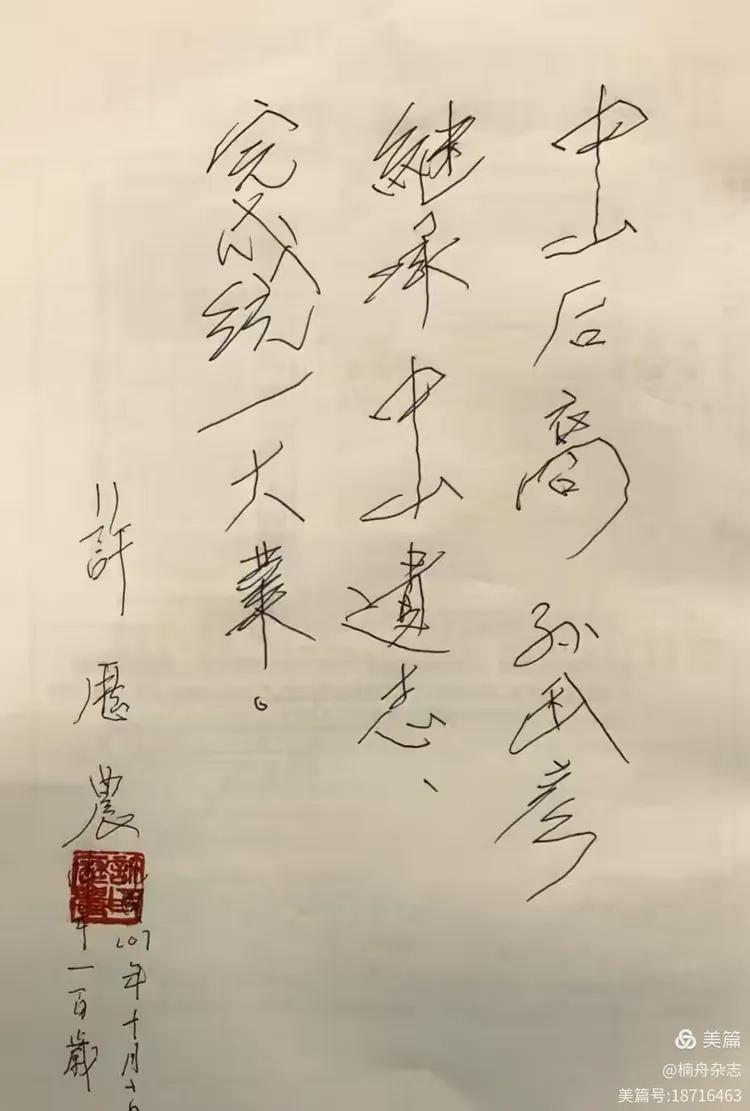 中山后裔孙武彦
继承中山遗志、
完成统一大業。
許歷農
107年十月十日
年一百歲
美篇
@楠舟杂志
美篇号:18716463